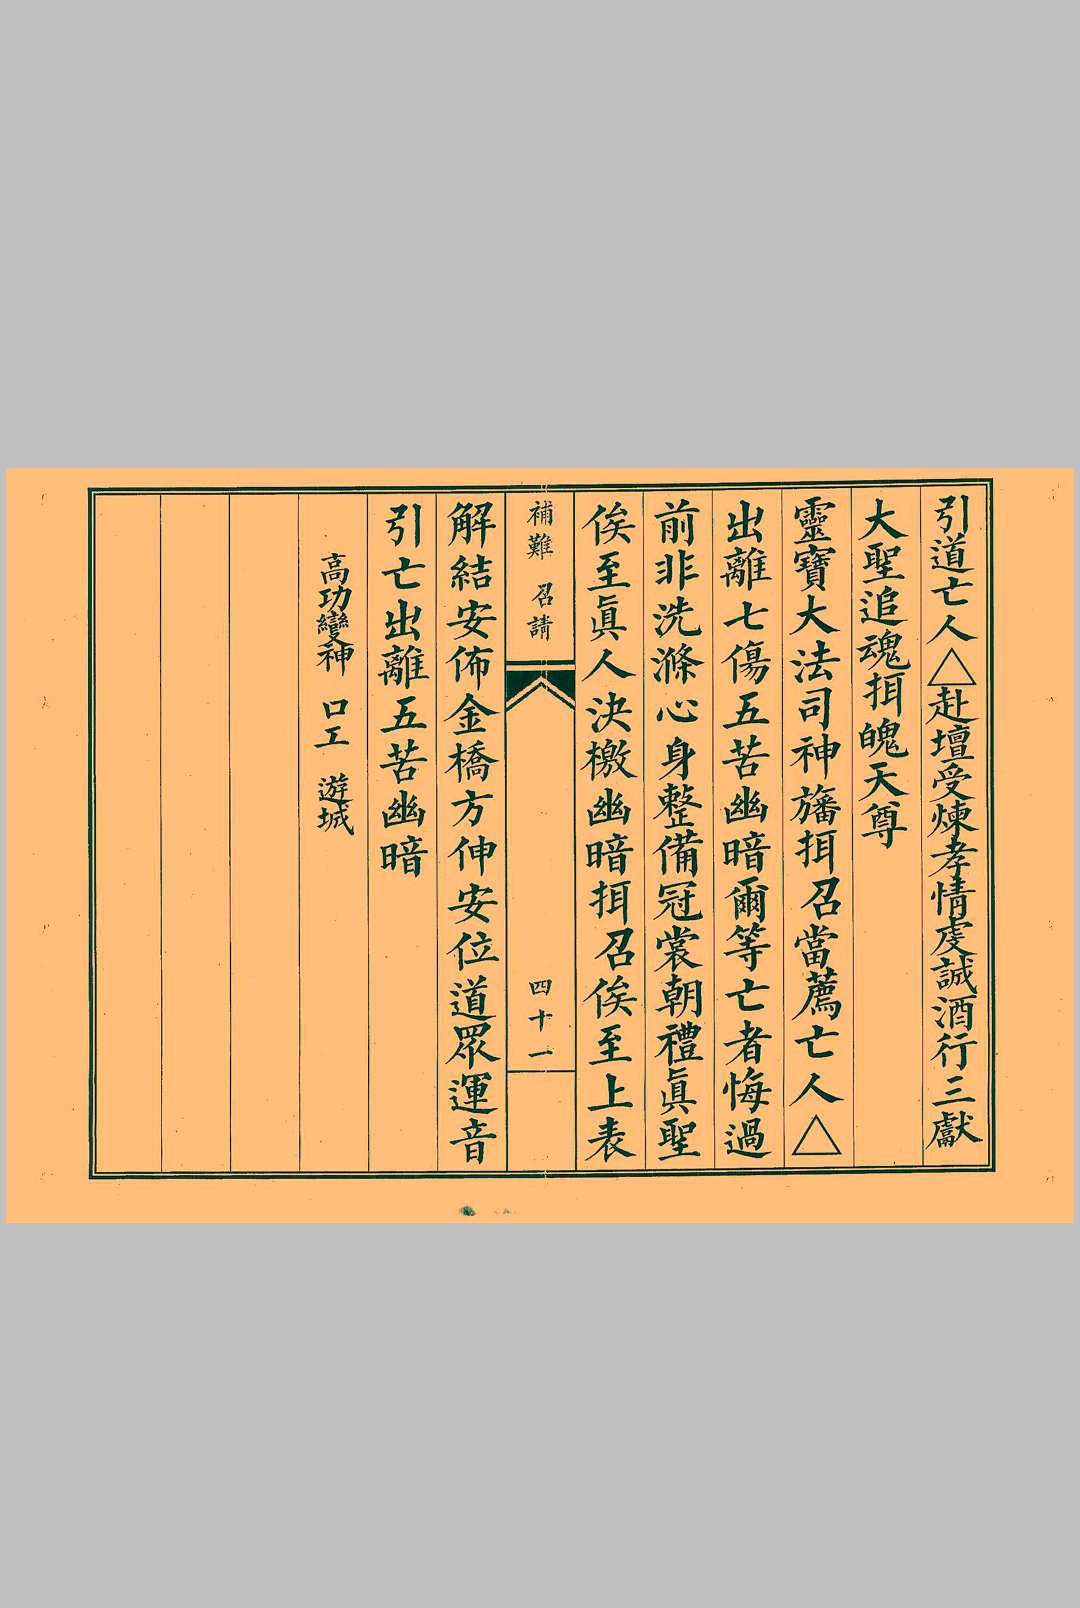 引道亡人△赴壇受煉孝情虔誠酒行三獻
大聖追魂挕魄天尊
靈寶大法司神旛挕召當薦亡人△
出離七傷五苦幽暗爾等亡者悔過
前非洗滌心身整備冠裳朝禮眞聖
俟至眞人決檄幽暗挕召俟至上表
補難 召請
四十一
解結安佈金橋方伸安位道眾運音
引亡出離五苦幽暗
高功變神 口工 遊城